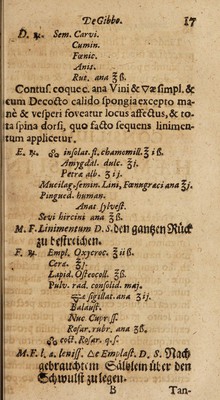 De Gibbo. 17
D. ♃. Sem. Carvi.
Cumin.
Fœnic.
Anis.
Rut. ana ℥ß.
Contus. coque c. ana Vini & 🜄æ simpl. &
cum Decocto calido spongia excepto ma-
nè & vesperi foveatur locus affectus, & to-
ta spina dorsi, quo facto sequens linimen-
tum applicetur.
E. ♃. insolat. fl. chamomill. ℥ ij.
Amygdal. dulc. ℥j.
Petra alb. ℥ ij.
Mucilag. semin. Lini, Fœnugræci ana ℥j.
Pingued. human.
Anat sylvest.
Sevi hircini ana ℥ß.
M. F. Linimentum D. S. den gantzen Rück
zu bestreichen.
F. ♃. Empl. Oxycroc. ℥iiß
Ceræ. ℥j.
Lapid. Osteocoll. ℥ß.
Pulv. rad. consolid. maj.
sigillat. ana ℥j.
Balaust.
Nuc Cupress.
Rosar. rubr. ana ℥ß.
coct. Rosar. q. s.
M. F. l. a. leniss. Emplast. D. S. Nach
gebrauchtem Sälblein über den
Schwulst zu legen.
B Tan-